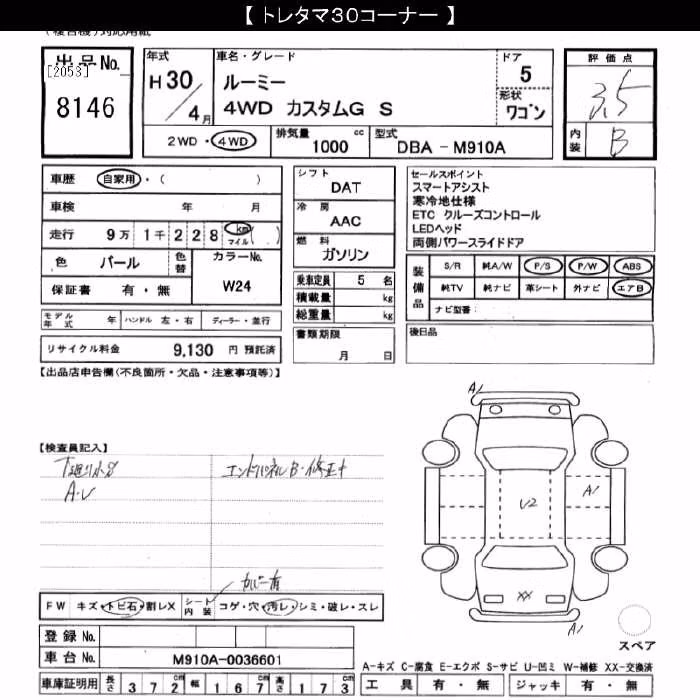 【 トレタマ30コーナー 】
(複合機)対応用紙
出品No.
[2053]
8146
年式
H30
/4月
車名・グレード
ルーミー
4WD カスタムG S
ドア
5
形状
ワゴン
評価点
3.5
内装
B
2WD・4WD
排気量
1000
cc
型式
DBA - M910A
車歴
自家用・( )
車検
年 月
走行
9万1千228
km
マイル
( )
色
パール
色替
カラーNo.
W24
保証書
有・無
モデル年式
年
ハンドル 左・右
ディーラー・並行
リサイクル料金
9,130 円 預託済
シフト
DAT
冷房
AAC
燃料
ガソリン
乗車定員 5 名
積載量 kg
総重量 kg
書類期限
月 日
セールスポイント
スマートアシスト
寒冷地仕様
ETC クルーズコントロール
LEDヘッド
両側パワースライドドア
装備品
S/R 純A/W P/S P/W ABS
純TV 純ナビ 革シート 外ナビ エアB
ナビ型番:
後日品
【出品店申告欄(不良箇所・欠品・注意事項等)】
【検査員記入】
A・U
エンドパネルB・修正十
カバー有
FW キズ・トビ石・割レX
シート内装 コゲ・穴・汚レ・シミ・破レ・スレ
登録 No.
車台 No. M910A-0036601
車庫証明用 長さ 372cm 幅 167cm 高さ 173cm
A1
U2
A1
XX
A1
スペア
A-キズ C-腐食 E-エクボ S-サビ U-凹ミ W-補修 XX-交換済
工具 有・無 ジャッキ 有・無